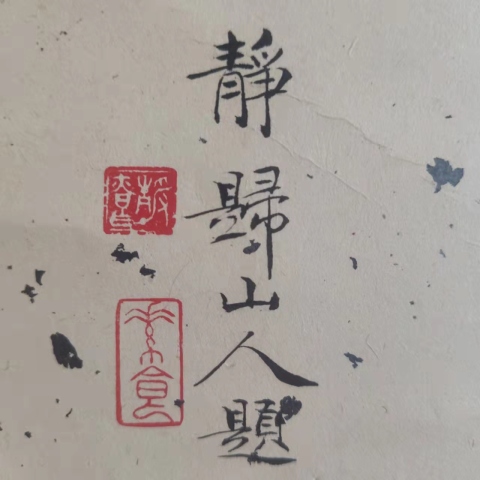 静歸山人題